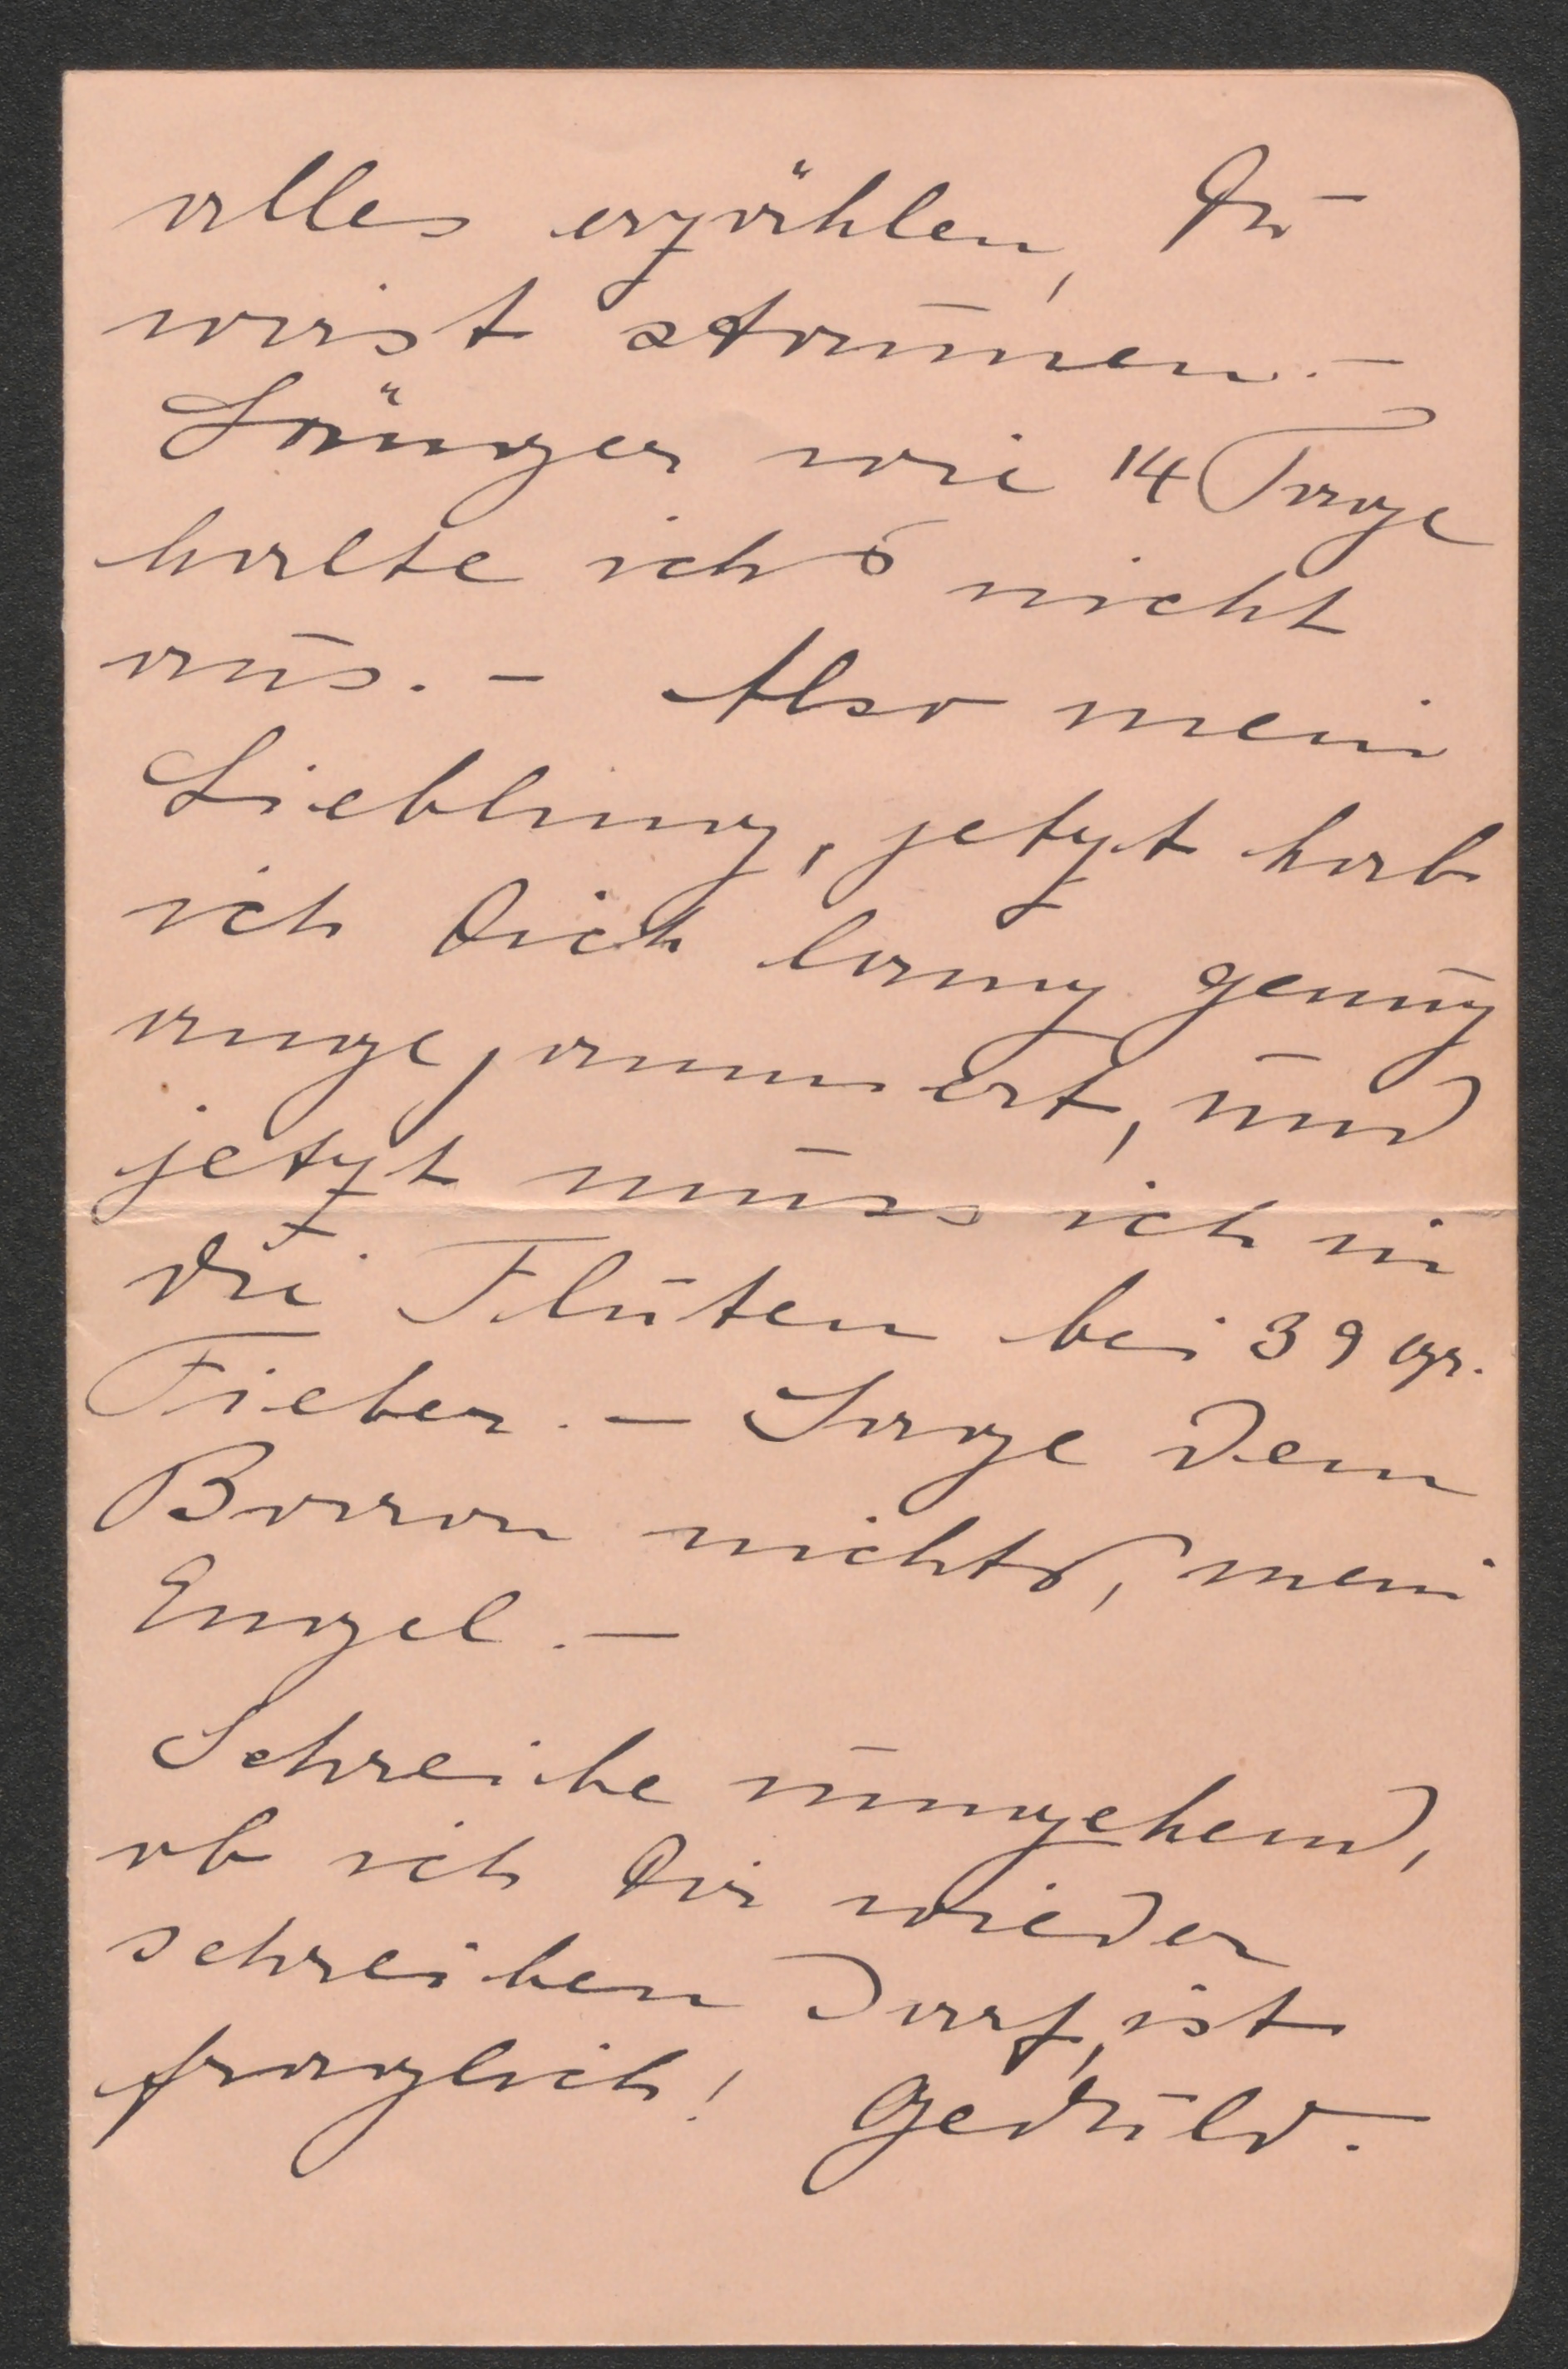 alles erzählen, Du
wirst staunen. –
Länger wie 14 Tage
halte ich's nicht
aus. – Also mein
Liebling, jetzt hab
ich Dich lang genug
angejammert, und
jetzt muss ich in
die Fluten bei 39 gr.
Fieber. – Sage dem
Baron nichts, mein
Engel. –
Schreibe umgehend,
ob ich Dir wieder
schreiben darf, ist
fraglich! Geduld.